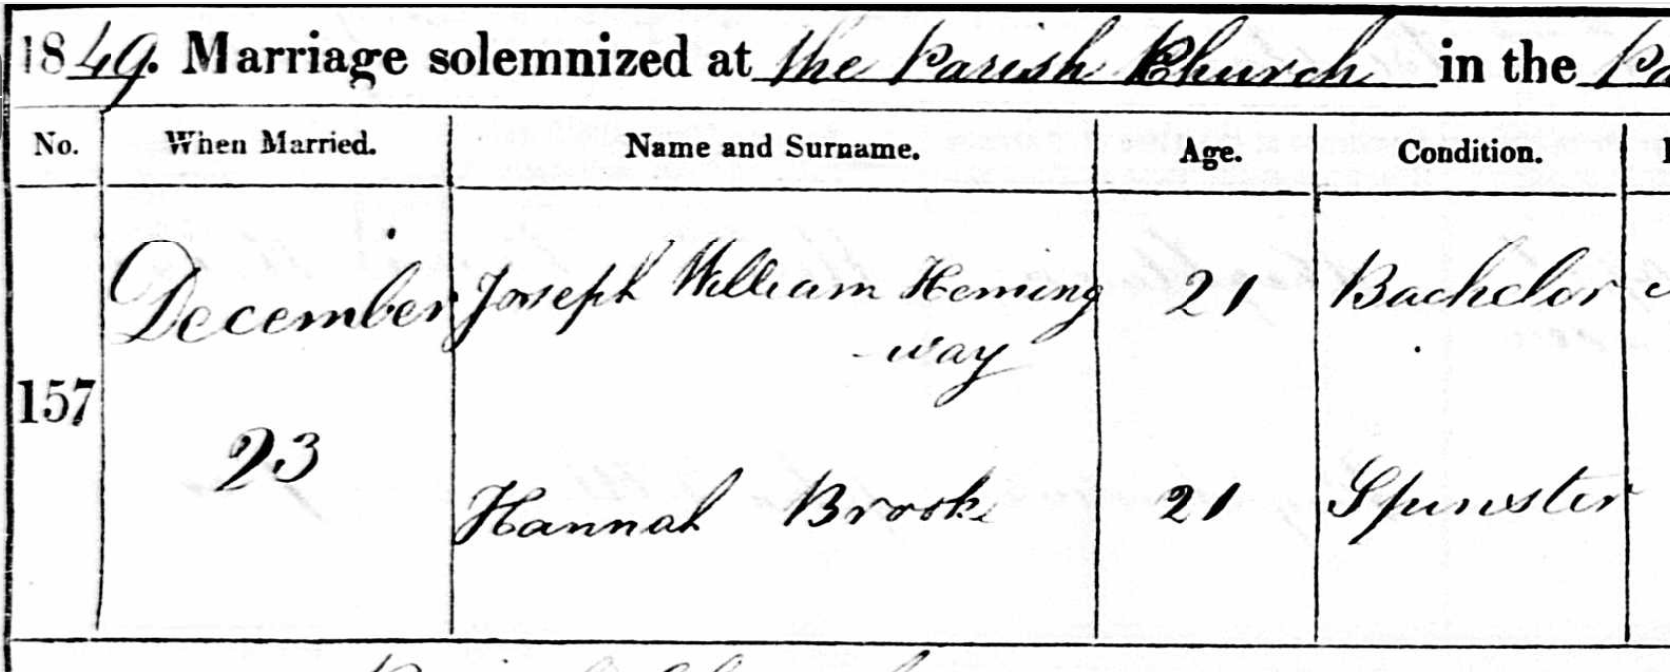 1849. Marriage solemnized at the Parish Church in the Pa
No. When Married. Name and Surname. Age. Condition.
December Joseph William Heming 21 Bachelor
-way
157
23
Hannah Brooke 21 Spinster